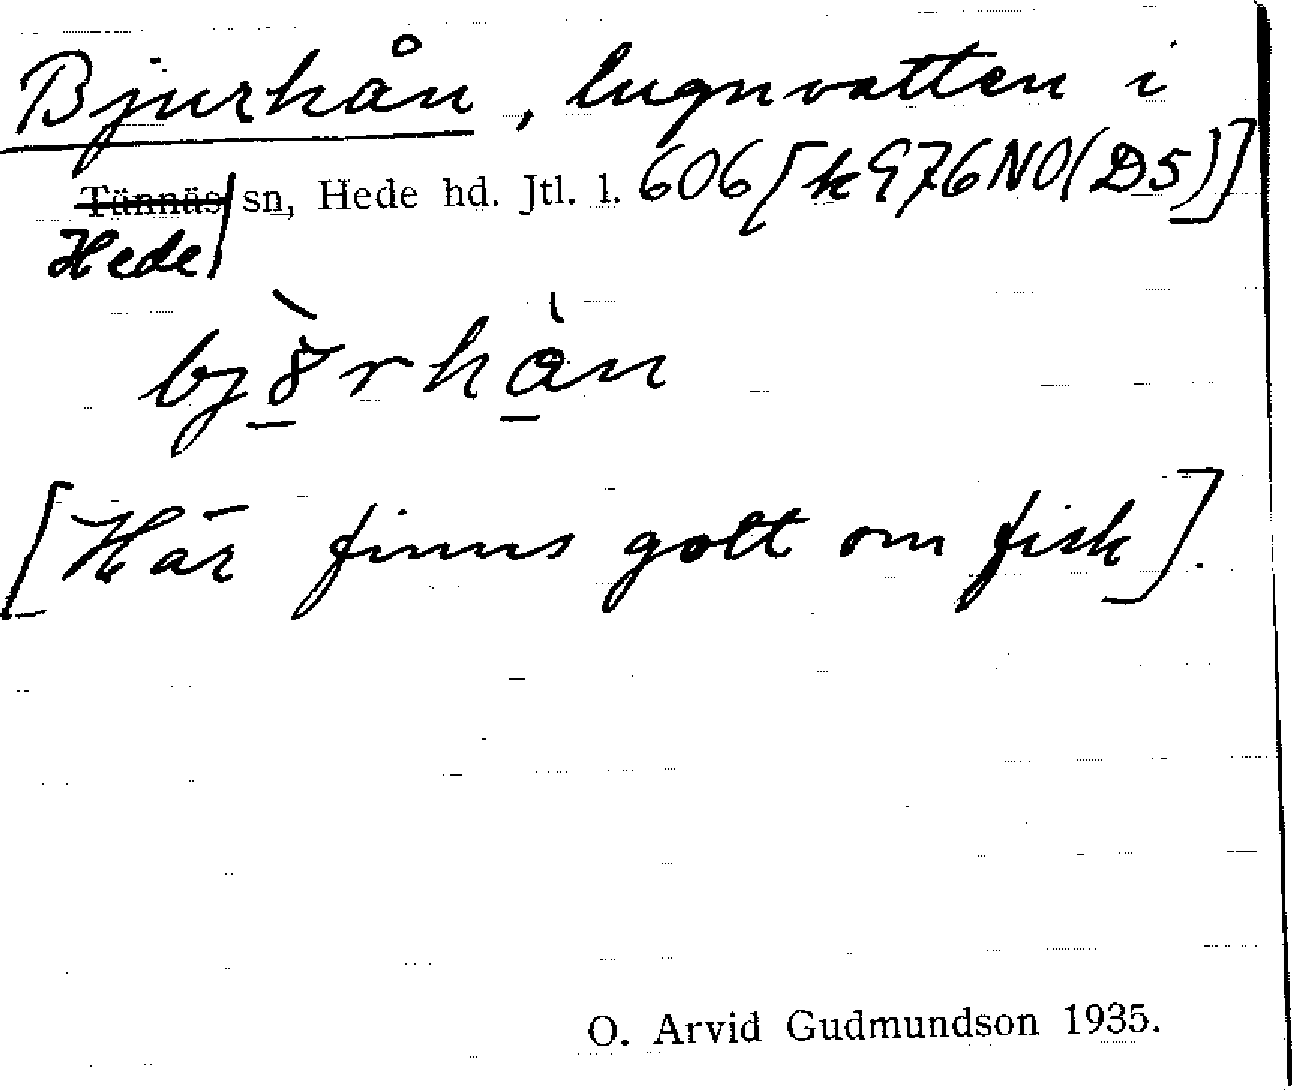 Bjurhån, lugnvatten i
Tännäs sn, Hede hd. Jtl. l. 606 [k 976 NO (D5)]
Hede
[Här finns gott om fisk].
O. Arvid Gudmundson 1935.